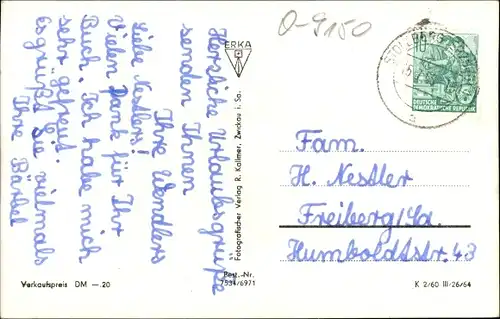 Herzliche Urlaubsgrüße
senden Ihnen
Ihre Wendlers
Liebe Nestlers!
Vielen Dank für Ihr
Buch. Ich habe mich
sehr gefreut.
Es grüßt Sie vielmals
Ihre Bärbel
ERKA
Fotografischer Verlag R. Kallmer, Zwickau i. Sa.
O-9150
10
DEUTSCHE
DEMOKRATISCHE REPUBLIK
a
Fam.
H. Nestler
Freiberg/Sa.
Humboldtstr. 43
Verkaufspreis DM —.20
Best.-Nr.
7534/6971
K 2/60 III/26/64